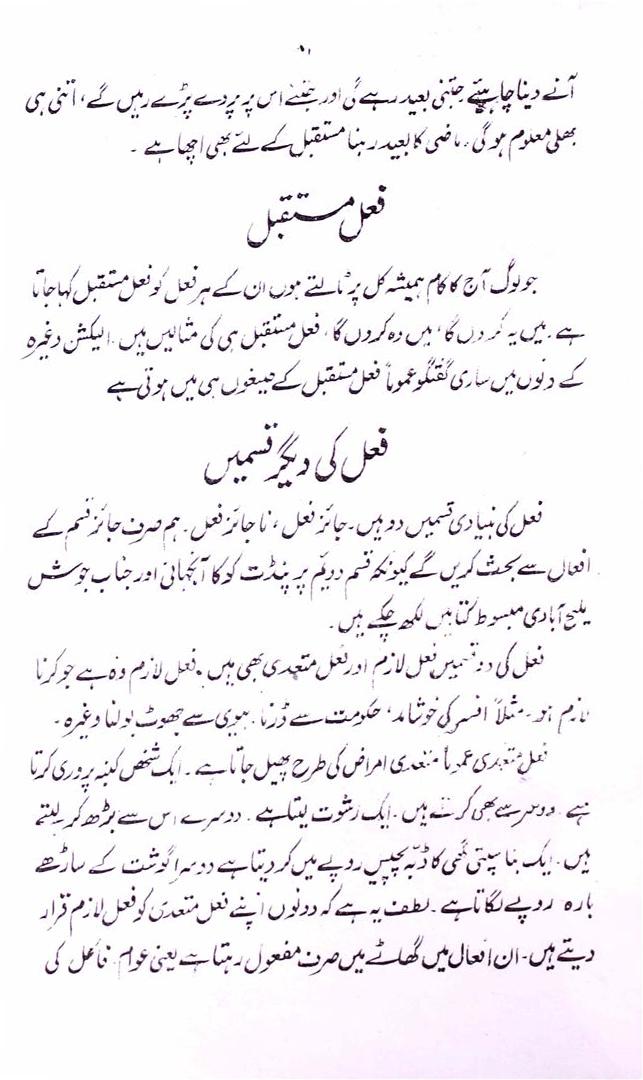 ۸۱
آنے دینا چاہیئے جتنی بعید رہے گی اور جتنے اس پر پردے پڑے رہیں گے، اتنی ہی
بھلی معلوم ہوگی، ماضی کا بعید رہنا مستقبل کے لئے بھی اچھا ہے ۔
فعل مستقبل
جو لوگ آج کا کام ہمیشہ کل پر ٹالتے ہوں ان کے ہر فعل کو فعل مستقبل کہا جاتا
ہے۔ میں یہ کر دوں گا، میں وہ کر دوں گا، فعل مستقبل ہی کی مثالیں ہیں۔ الیکشن وغیرہ
کے دنوں میں ساری گفتگو عموماً فعل مستقبل کے صیغوں ہی میں ہوتی ہے
فعل کی دیگر قسمیں
فعل کی بنیادی قسمیں دو ہیں۔ جائز فعل، ناجائز فعل۔ ہم صرف جائز قسم کے
افعال سے بحث کریں گے کیونکہ قسم دویم پر پنڈت کوکا آنجہانی اور جناب جوش
ملیح آبادی مبسوط کتابیں لکھ چکے ہیں۔
فعل کی دو قسمیں فعل لازم اور فعل متعدی بھی ہیں۔ فعل لازم وہ ہے جو کرنا
لازم ہو۔ مثلاً افسر کی خوشامد، حکومت سے ڈرنا، بیوی سے جھوٹ بولنا وغیرہ۔
فعل متعدی عموماً متعدی امراض کی طرح پھیل جاتا ہے۔ ایک شخص کنبہ پروری کرتا
ہے۔ دوسرے بھی کرتے ہیں۔ ایک رشوت لیتا ہے۔ دوسرے اس سے بڑھ کر لیتے
ہیں۔ ایک بناسپتی گھی کا ڈبہ پچیس روپے میں کر دیتا ہے دوسرا گوشت کے ساڑھے
بارہ روپے لگاتا ہے۔ لطف یہ ہے کہ دونوں اپنے فعل متعدی کو فعل لازم قرار
دیتے ہیں۔ ان افعال میں گھاٹے میں صرف مفعول رہتا ہے یعنی عوام۔ فاعل کی